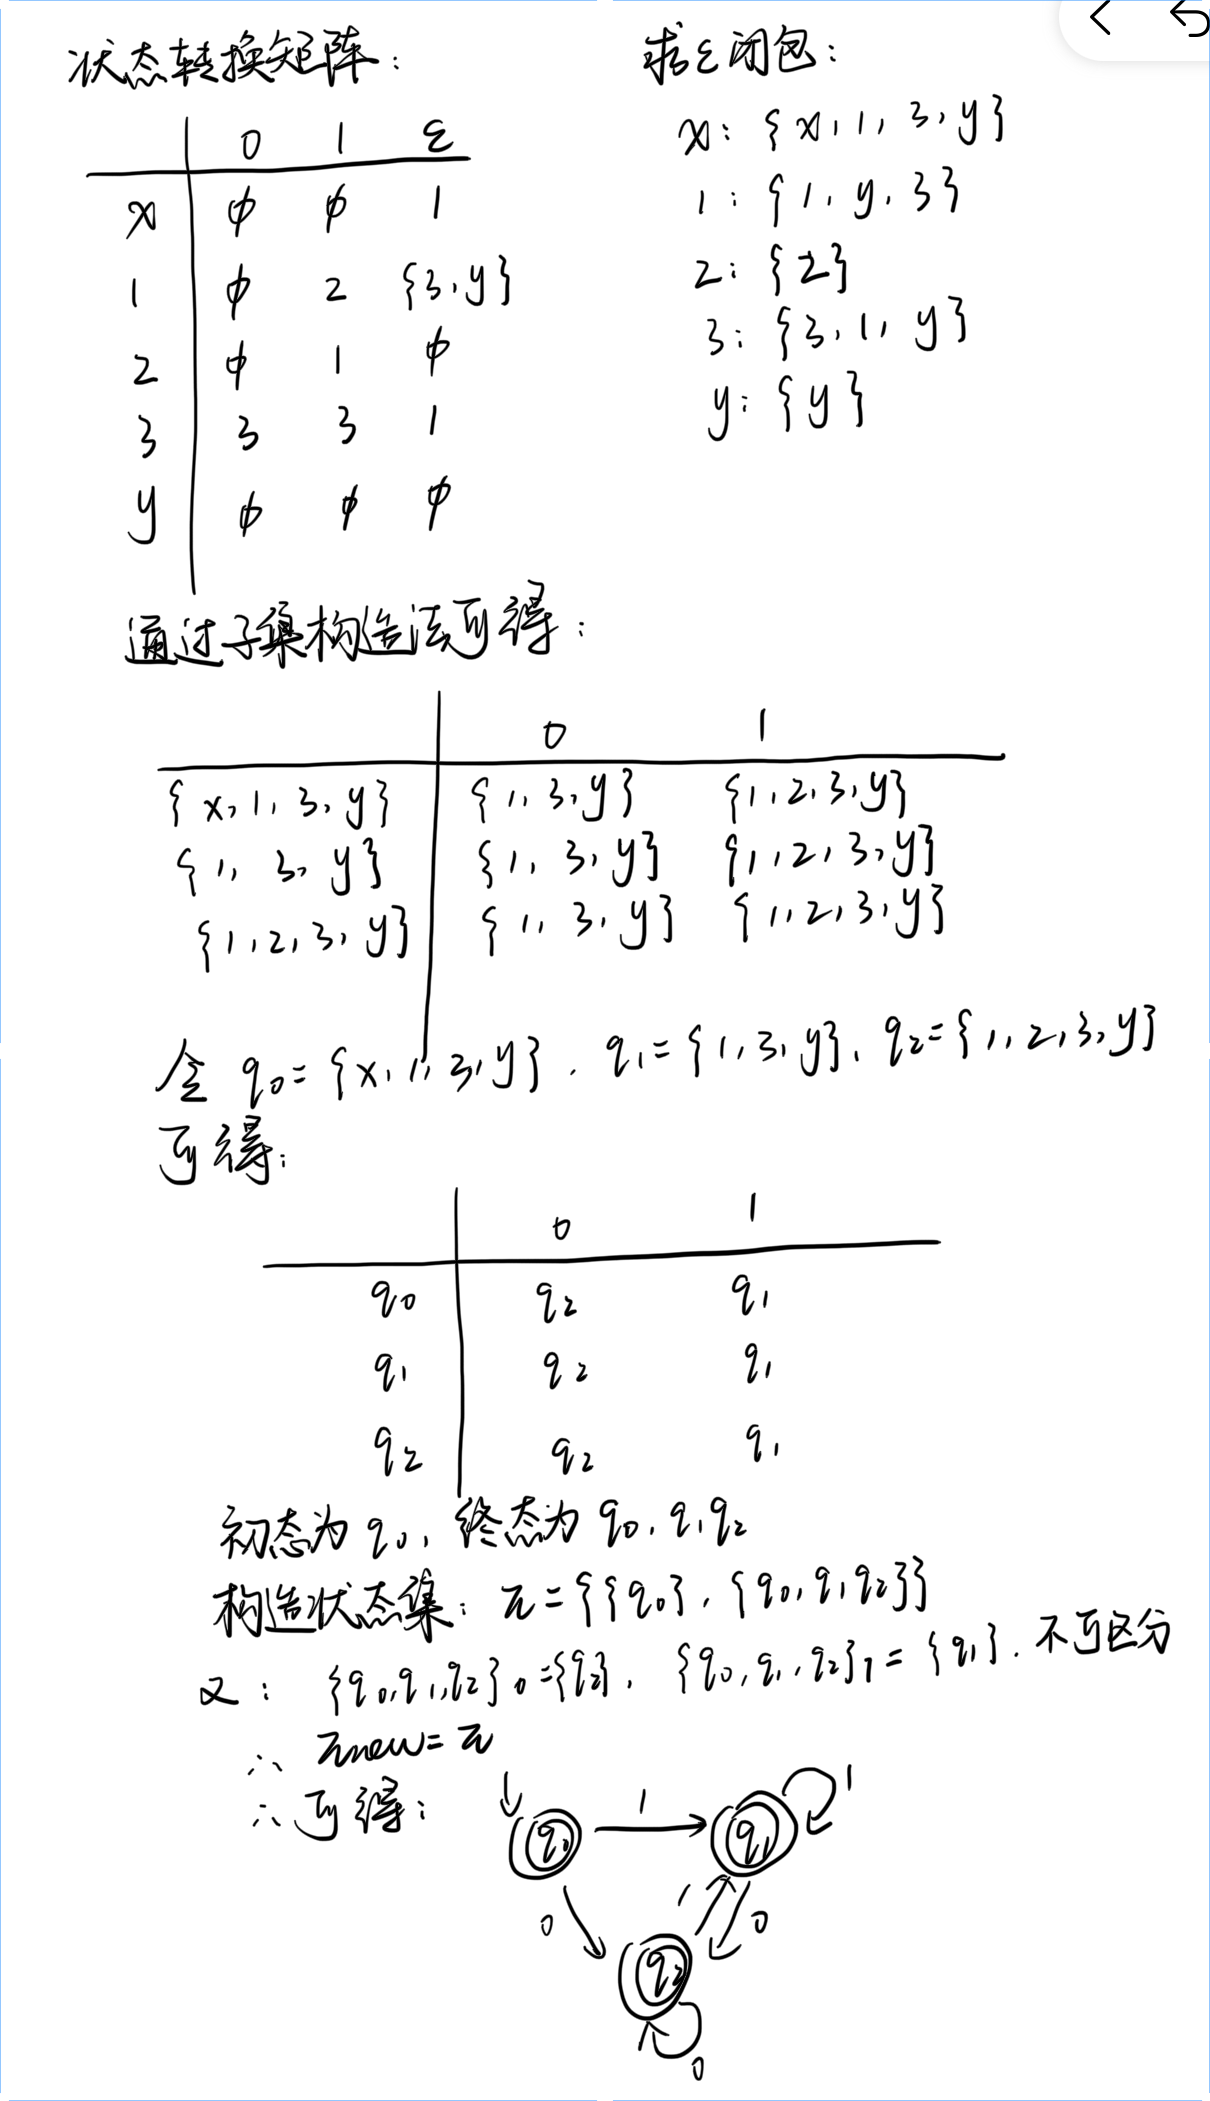 状态转换矩阵：
0 1 ε
x ϕ ϕ 1
1 ϕ 2 {3,y}
2 ϕ 1 ϕ
3 3 3 1
y ϕ ϕ ϕ
求ε闭包：
x: {x,1,3,y}
1: {1,y,3}
2: {2}
3: {3,1,y}
y: {y}
通过子集构造法可得：
0 1
{x,1,3,y} {1,3,y} {1,2,3,y}
{1,3,y} {1,3,y} {1,2,3,y}
{1,2,3,y} {1,3,y} {1,2,3,y}
令 q0={x,1,3,y}, q1={1,3,y}, q2={1,2,3,y}
可得：
0 1
q0 q2 q1
q1 q2 q1
q2 q2 q1
初态为q0, 终态为 q0,q1q2
构造状态集：π={{q0},{q0,q1q2}}
又：{q0,q1,q2}0={q2}, {q0,q1,q2}1={q1}. 不可区分
∴ πnew=π
∴ 可得：
1
q0 1 q1
0 1 0
q2
0